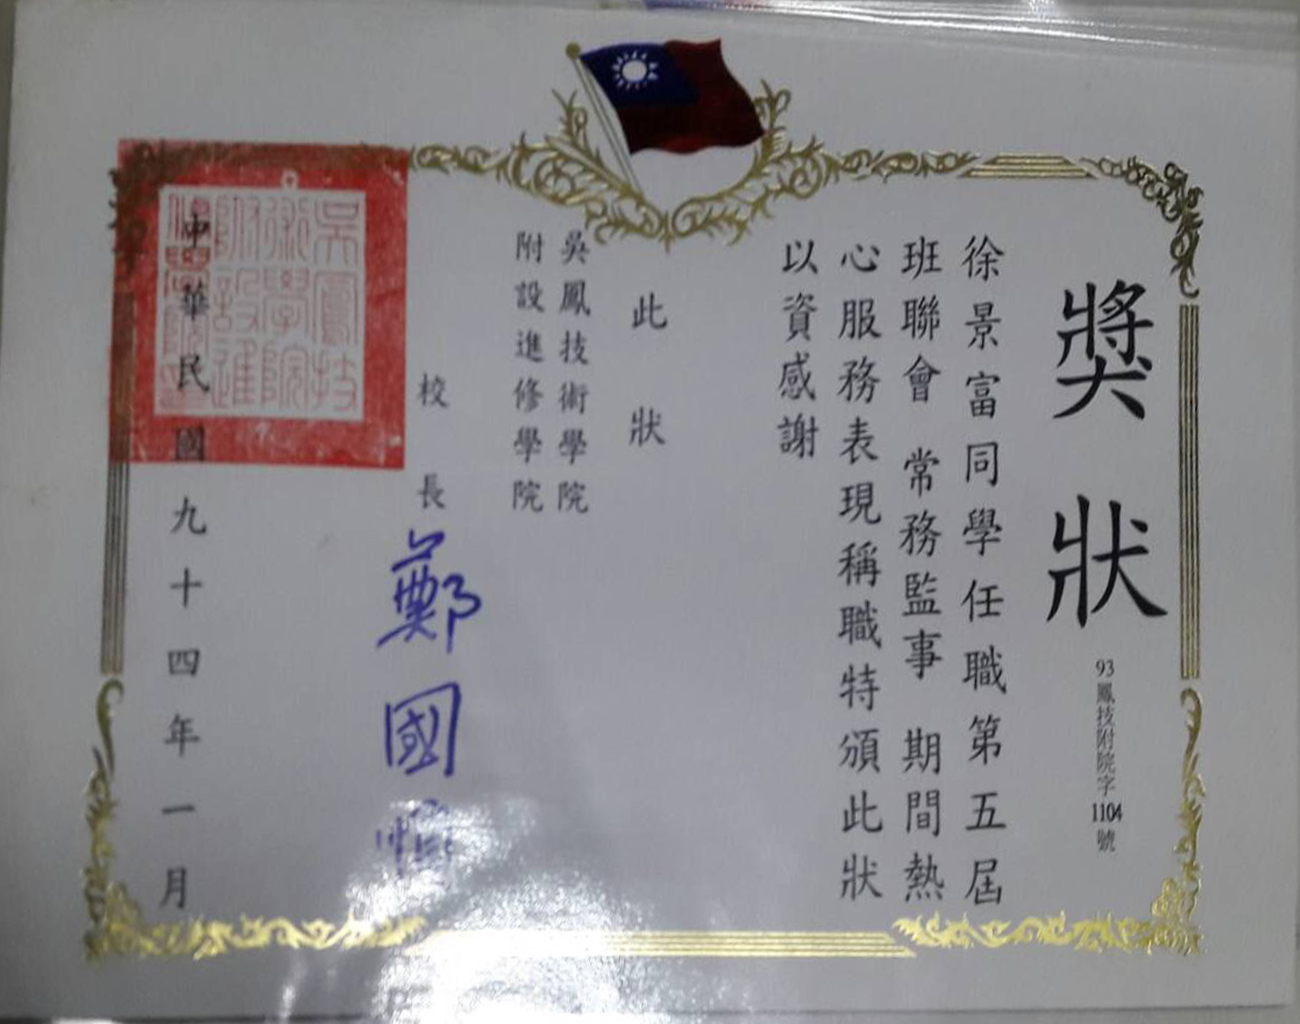 獎狀
93鳳技附院字1104號
徐景富同學任職第五屆
班聯會 常務監事 期間熱
心服務表現稱職特頒此狀
以資感謝
此狀
吳鳳技術學院
附設進修學院
校長 鄭國
中華民國九十四年一月
吳鳳技
術學院
附設進